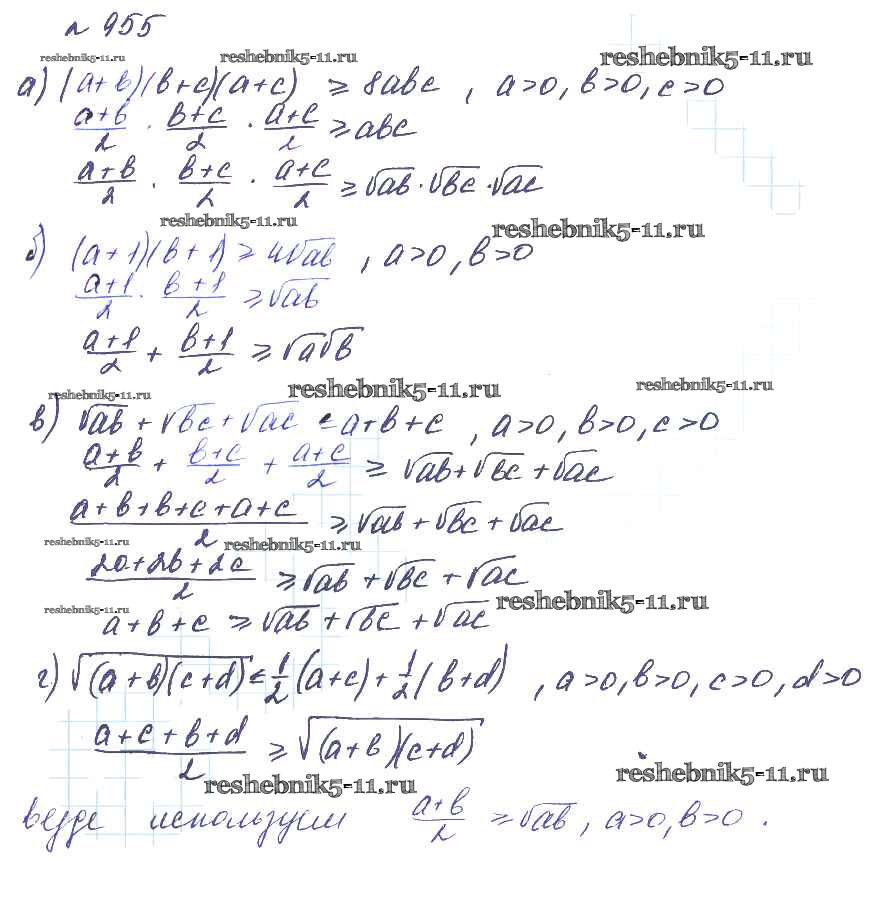 № 955
reshebnik5-11.ru reshebnik5-11.ru reshebnik5-11.ru
а) (a+b)(b+c)(a+c) ≥ 8abc , a>0, b>0, c>0
(a+b)/2 · (b+c)/2 · (a+c)/2 ≥ abc
(a+b)/2 · (b+c)/2 · (a+c)/2 ≥ √ab · √bc · √ac
reshebnik5-11.ru reshebnik5-11.ru
б) (a+1)(b+1) ≥ 4√ab , a>0, b>0
(a+1)/2 · (b+1)/2 ≥ √ab
(a+1)/2 + (b+1)/2 ≥ √a√b
reshebnik5-11.ru reshebnik5-11.ru reshebnik5-11.ru
в) √ab + √bc + √ac ≤ a+b+c , a>0, b>0, c>0
(a+b)/2 + (b+c)/2 + (a+c)/2 ≥ √ab + √bc + √ac
(a+b+b+c+a+c)/2 ≥ √ab + √bc + √ac
reshebnik5-11.ru reshebnik5-11.ru
(2a+2b+2c)/2 ≥ √ab + √bc + √ac
reshebnik5-11.ru reshebnik5-11.ru
a+b+c ≥ √ab + √bc + √ac
г) √((a+b)(c+d)) ≤ 1/2 (a+c) + 1/2 (b+d) , a>0, b>0, c>0, d>0
(a+c+b+d)/2 ≥ √((a+b)(c+d))
reshebnik5-11.ru reshebnik5-11.ru
везде используем (a+b)/2 ≥ √ab , a>0, b>0 .